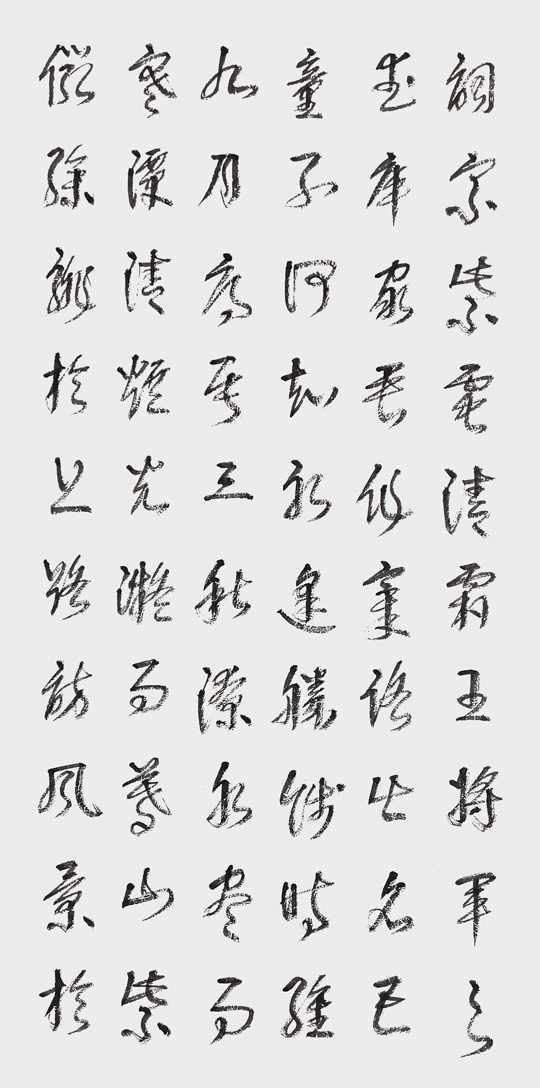 詞宗紫電清霜王將軍之
武庫家君作宰路出名區
童子何知躬逢勝餞時維
九月序屬三秋潦水盡而
寒潭清煙光凝而暮山紫
儼驂騑於上路訪風景於